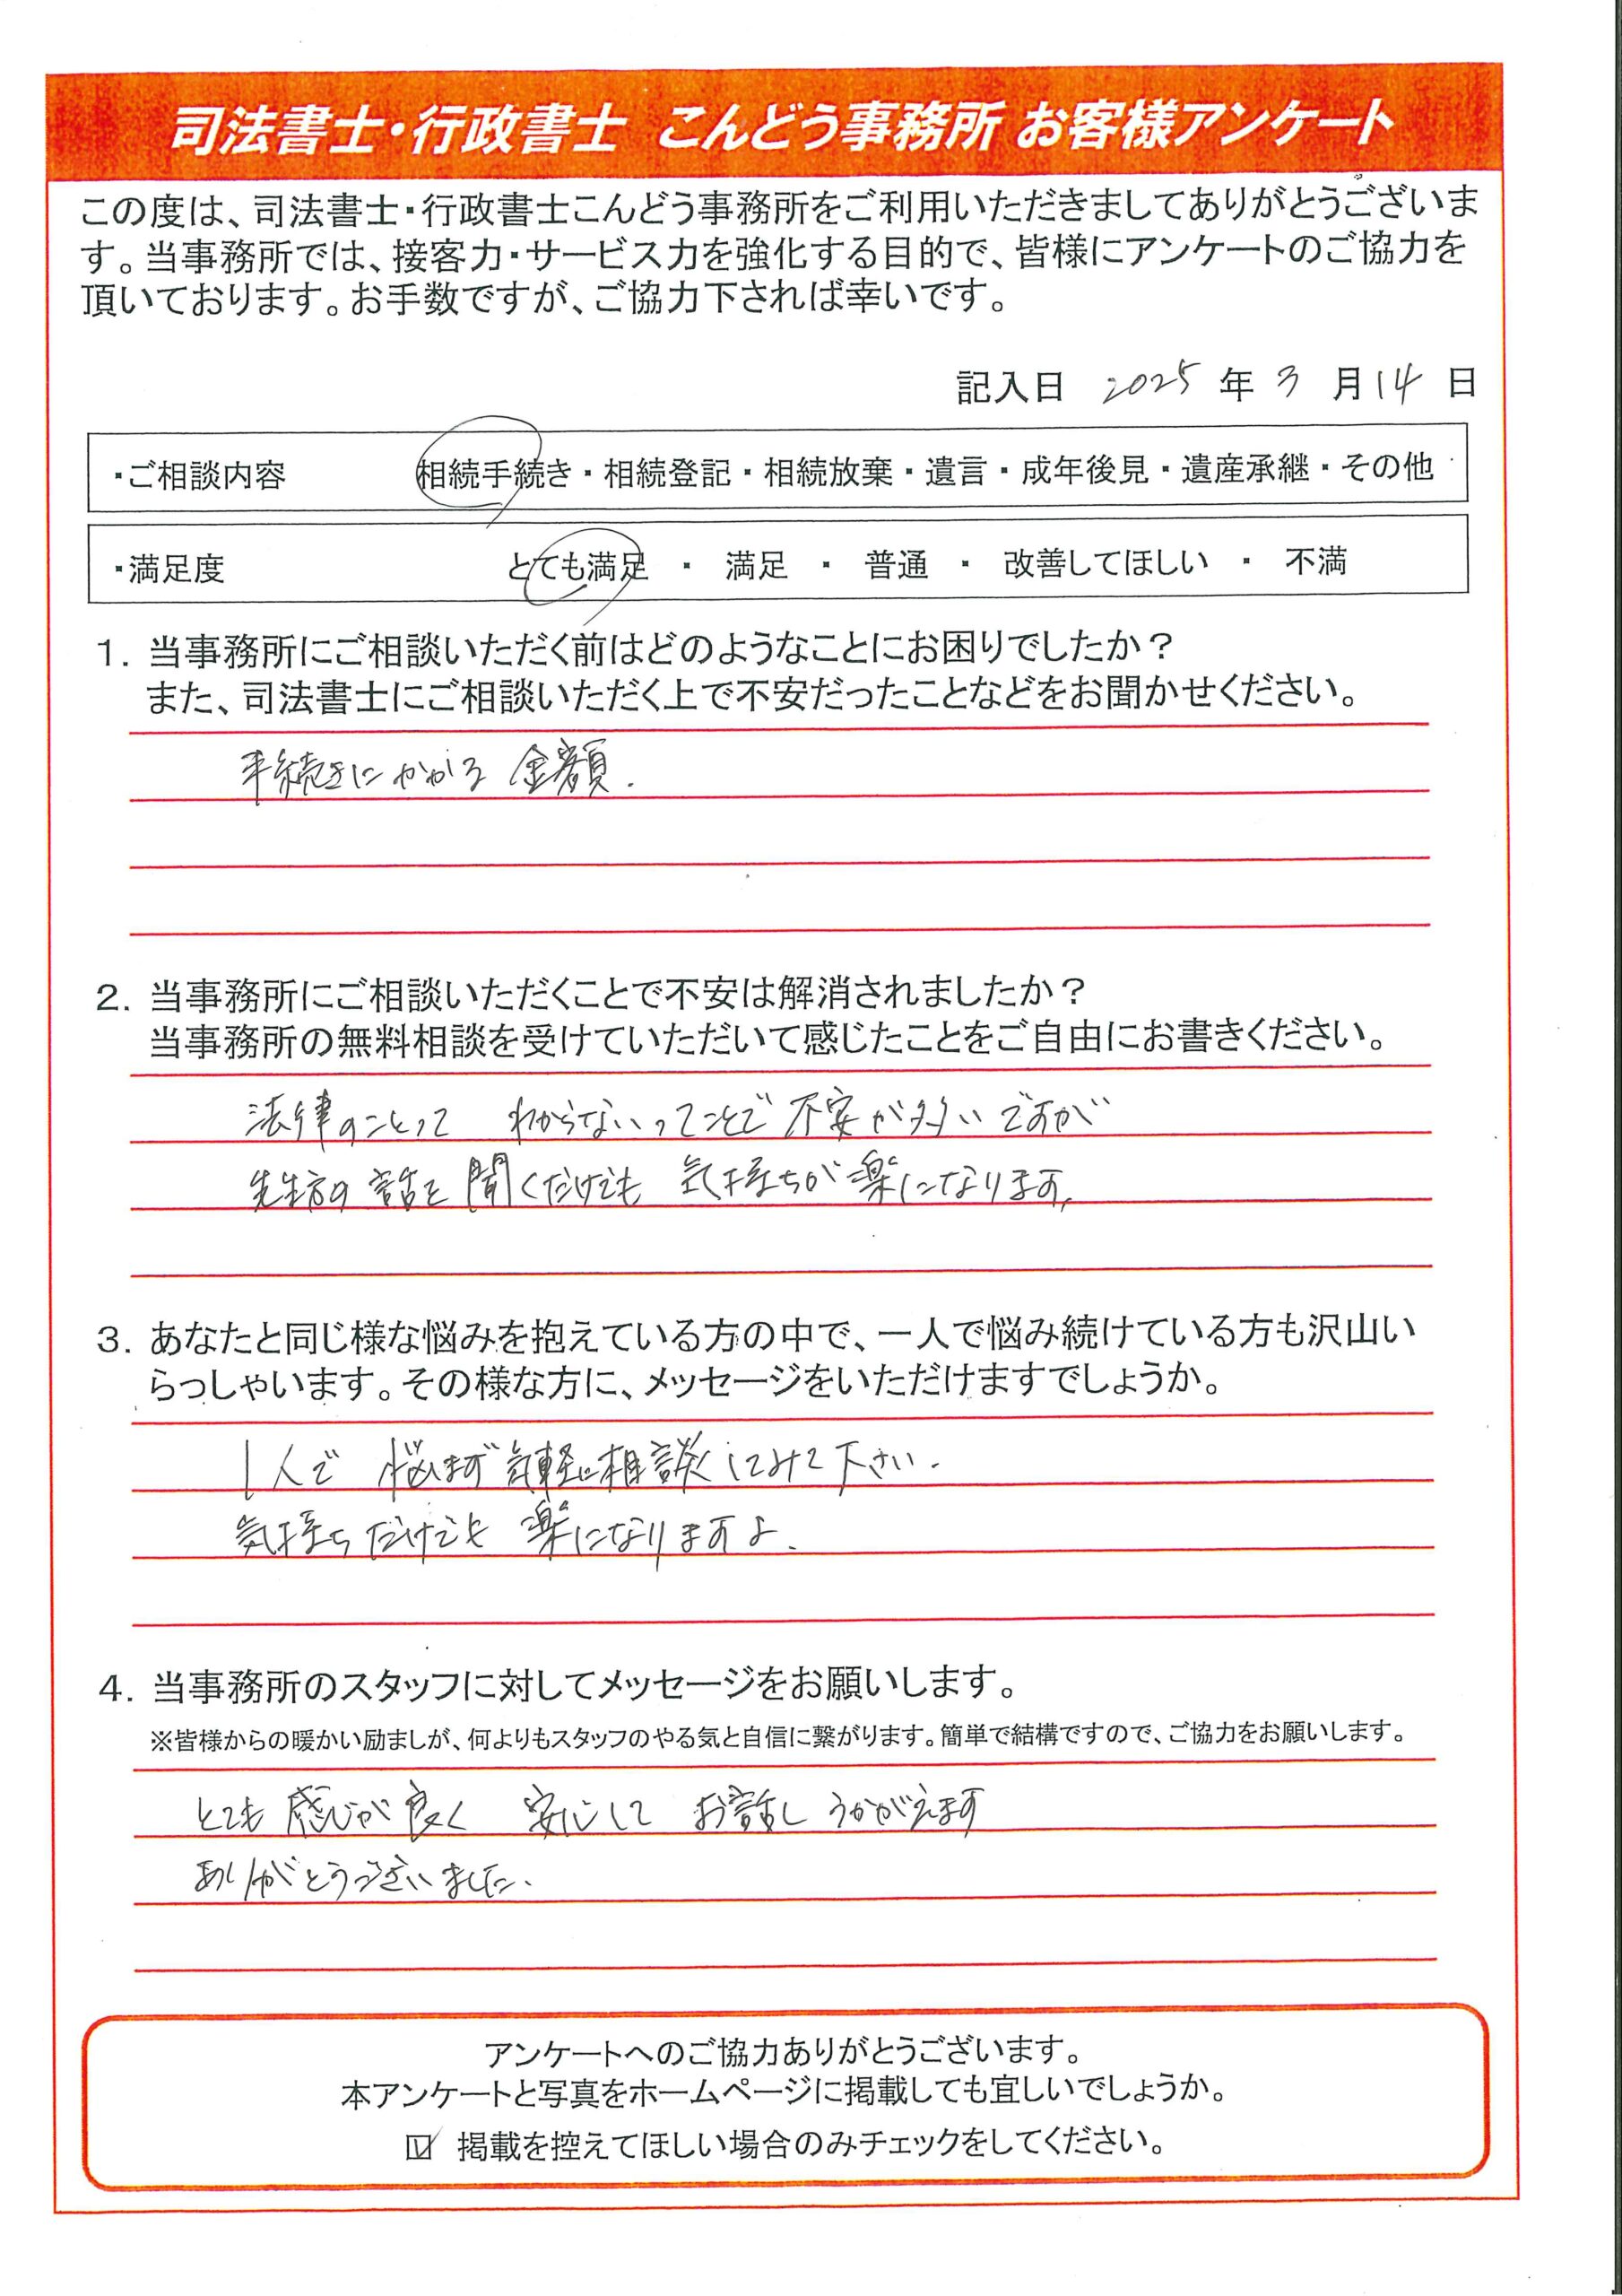 司法書士・行政書士 こんどう事務所 お客様アンケート
この度は、司法書士・行政書士こんどう事務所をご利用いただきましてありがとうございま
す。当事務所では、接客力・サービス力を強化する目的で、皆様にアンケートのご協力を
頂いております。お手数ですが、ご協力下されば幸いです。
記入日 2025 年 3 月 14 日
・ご相談内容 相続手続き・相続登記・相続放棄・遺言・成年後見・遺産承継・その他
・満足度 とても満足 ・ 満足 ・ 普通 ・ 改善してほしい ・ 不満
1. 当事務所にご相談いただく前はどのようなことにお困りでしたか？
また、司法書士にご相談いただく上で不安だったことなどをお聞かせください。
手続きにかかる 金額.
2. 当事務所にご相談いただくことで不安は解消されましたか？
当事務所の無料相談を受けていただいて感じたことをご自由にお書きください。
法律のことって わからないってことで 不安が多いですが
先生方の 話を 聞くだけでも 気持ちが楽になります。
3. あなたと同じ様な悩みを抱えている方の中で、一人で悩み続けている方も沢山い
らっしゃいます。その様な方に、メッセージをいただけますでしょうか。
1人で 悩まず 気軽に相談してみて下さい.
気持ちだけでも 楽になりますよ.
4. 当事務所のスタッフに対してメッセージをお願いします。
※皆様からの暖かい励ましが、何よりもスタッフのやる気と自信に繋がります。簡単で結構ですので、ご協力をお願いします。
とても 感じが良く 安心して お話し うかがえます
ありがとうございました.
アンケートへのご協力ありがとうございます。
本アンケートと写真をホームページに掲載しても宜しいでしょうか。
☑ 掲載を控えてほしい場合のみチェックをしてください。